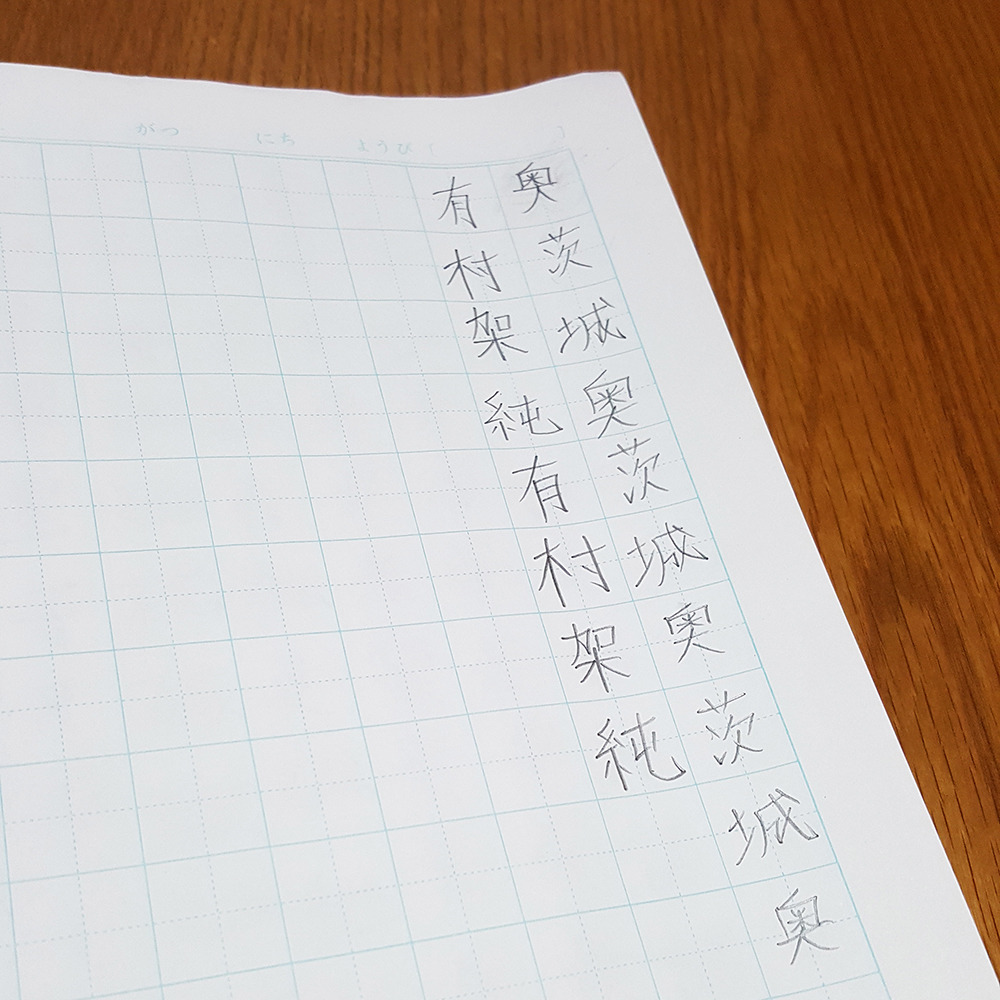 がつ にち ようび（ ）
奥茨城奥茨城奥茨城奥
有村架純有村架純